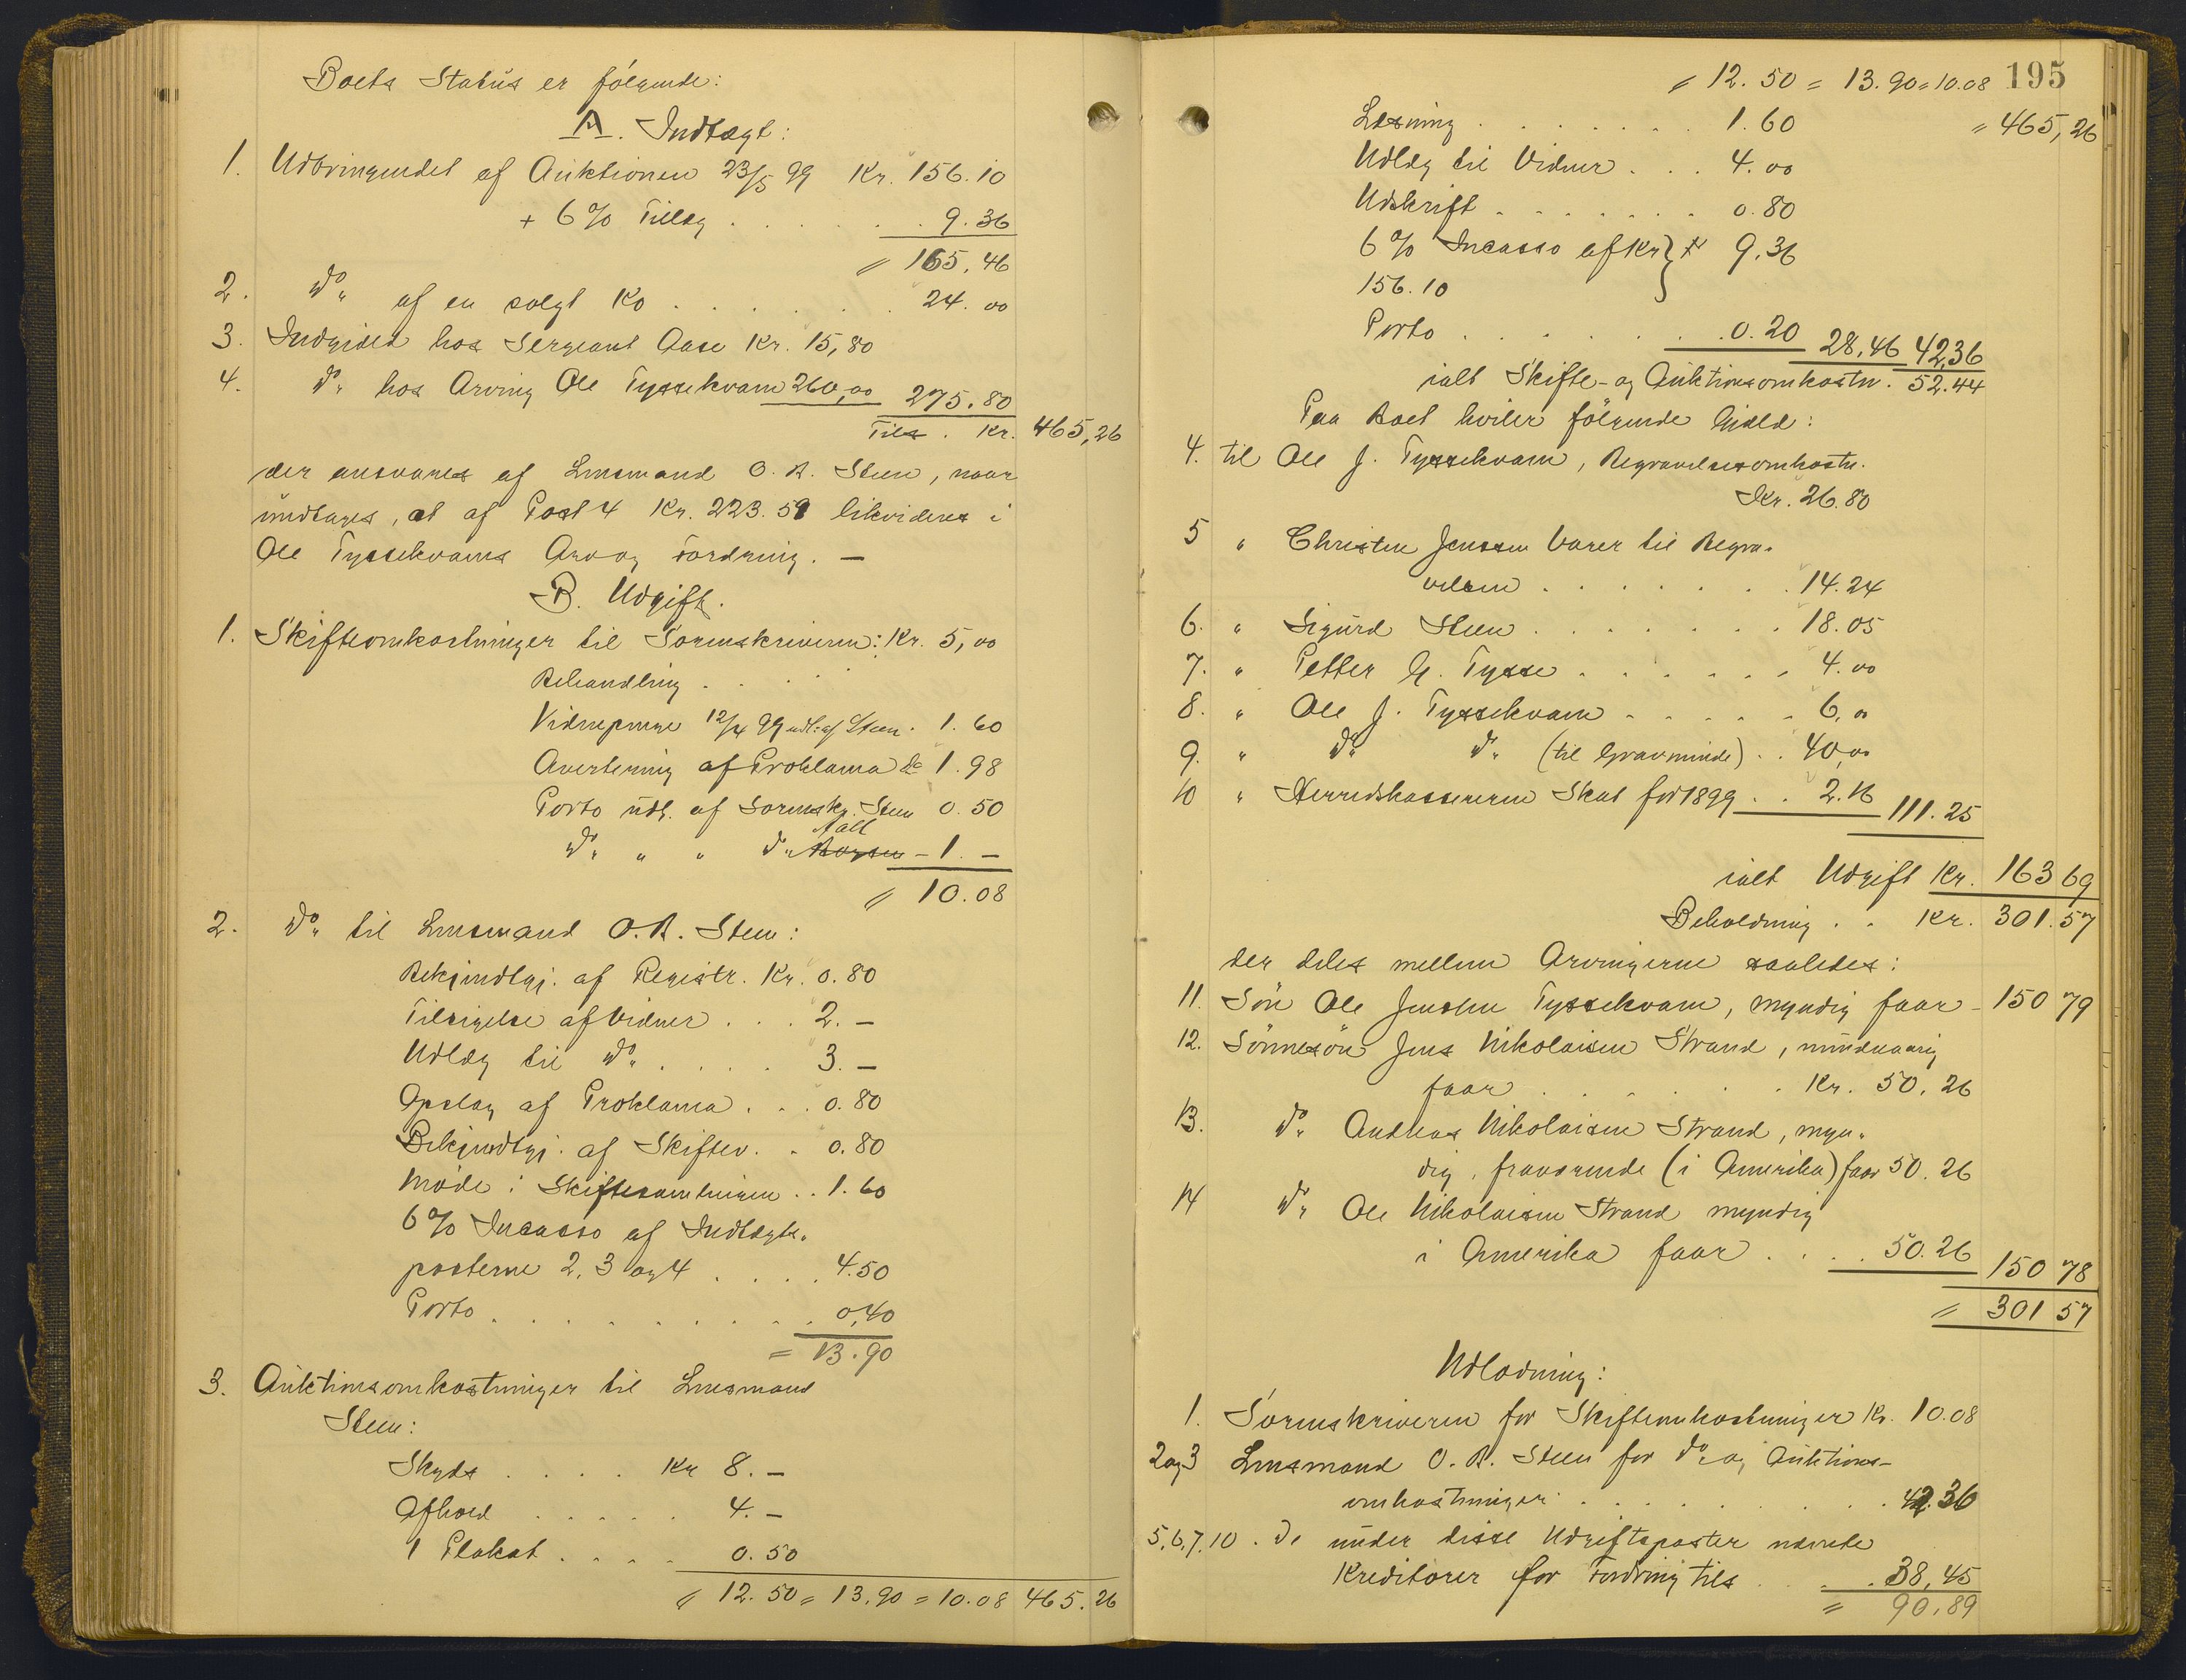 Boets Status er følgende:
A. Indtægt:
1. Udbringendet af Auktionen 23/5 99 Kr. 156.10
+ 6 % Tillæg . . . . . 9.36
= 165,46
2. Do af en solgt Ko . . . . . . 24.00
3. Indgivet hos Sergeant Aase Kr. 15,80
4. Do hos Arving Ole Tyssekvam 260,00 275.80
Tils. Kr. 465,26
der ansvares af Lensmand O. R. Steen, naar
undtages, at af Post 4 Kr. 223.59 likvideres i
Ole Tyssekvams Arv og Fordring. —
B. Udgift.
1. Skifteomkostninger til Sorenskriveren: Kr. 5,00
Behandling . . . .
Vidnepenge 12/4 99 udl. af Steen. 1.60
Avertering af Proklama Do 1.98
Porto udl. af Sorenskr. Steen 0.50
Do " " Do Fall - 1. —
= 10.08
2. Do til Lensmand O. R. Steen:
Bekjendtgj. af Registr. Kr. 0.80
Tilsigelse af Vidner . . . 2. —
Udlæg til Do . . . . 3. —
Opslag af Proklama . . . 0.80
Bekjendtgj. af Skiftev. . 0.80
Møde i Skiftesamlingen . . 1.60
6 % Incasso af Indtægts-
posterne 2, 3 og 4 . . . . 4.50
Porto . . . . . . . . . 0,40
= 13.90
3. Auktionsomkostninger til Lensmand
Steen:
Skyds . . . . Kr 8. —
Afhold . . . . . 4. —
1 Plakat . . . . 0.50
= 12.50 = 13.90 = 10.08 465.26
= 12.50 = 13.90 = 10.08 195
Læsning . . . . . . . 1.60 = 465,26
Udlæg til Vidner . . . 4.00
Udskrift . . . . . . . 0.80
6 % Incasso af Kr } 9.36
156.10
Porto . . . . . . . 0.20 28,46 42,36
ialt Skifte- og Auktionsomkostn. 52.44
Paa Boet hviler følgende Gjæld:
4. til Ole J. Tyssekvam, Begravelsesomkostn.
Kr. 26.80
5 " Christen Jenssen Varer til Begra-
velsen . . . . . . . 14.24
6. " Sigurd Steen . . . . . . . 18.05
7. " Petter H. Tysse . . . . . . 4.00
8. " Ole J. Tyssekvam . . . . . 6,00
9. " Do Do (til Gravminde) . . 40,00
10 " Herredskassereren Skat for 1899 . . 2.16 111.25
ialt Udgift Kr. 163 69
Beholdning . . Kr. 301.57
der deles mellem Arvingerne saaledes:
11. Søn Ole Jensen Tyssekvam, myndig faar - 150 79
12. Sønnesøn Jens Nikolaisen Strand, mindreaarig
faar . . . . . . Kr. 50.26
13. Do Andreas Nikolaisen Strand, myn-
dig, fraværende (i Amerika) faar 50.26
14 Do Ole Nikolaisen Strand myndig
i Amerika faar . . . . 50.26 150 78
= 301 57
Udlodning:
1. Sorenskriveren for Skifteomkostninger Kr. 10.08
2 og 3 Lensmand O. R. Steen for Do og Auktions-
omkostninger . . . . . . . . . 42.36
5,6,7,10 . De under disse Udgiftsposter nævnte
Kreditorer for Fordring tils . . . 38,45
= 90.89